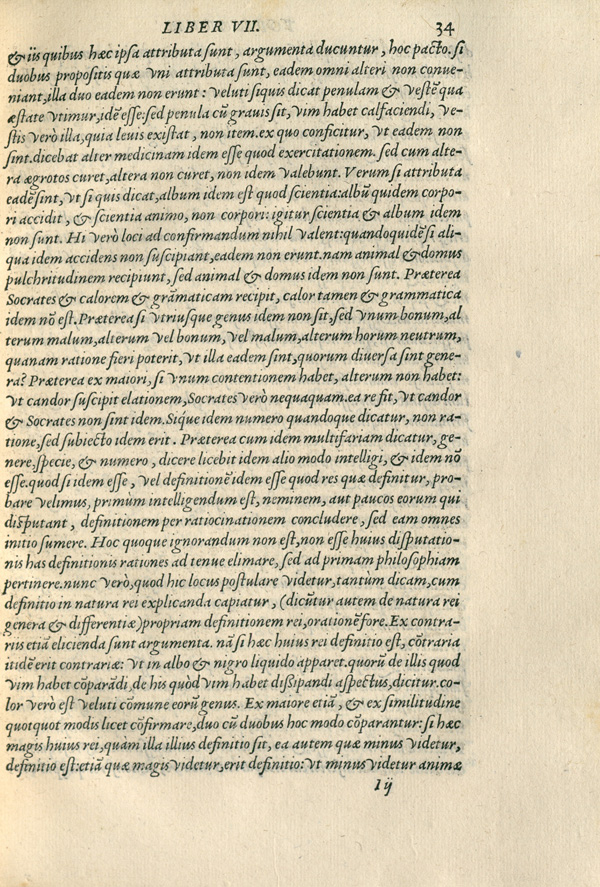 LIBER VII. 34
& iis quibus hæc ipsa attributa sunt, argumenta ducuntur, hoc pacto. si
duobus propositis quæ vni attributa sunt, eadem omni alteri non conue-
niant, illa duo eadem non erunt: veluti siquis dicat penulam & vestē qua
æstate vtimur, idē esse: sed penula cū grauis sit, vim habet calfaciendi, ve-
stis verò illa, quia leuis existat, non item. ex quo conficitur, vt eadem non
sint. dicebat alter medicinam idem esse quod exercitationem. sed cum alte-
ra ægrotos curet, altera non curet, non idem valebunt. Verum si attributa
eadē sint, vt si quis dicat, album idem est quod scientia: albū quidem corpo-
ri accidit, & scientia animo, non corpori: igitur scientia & album idem
non sunt. Hi verò loci ad confirmandum nihil valent: quandoquidē si ali-
qua idem accidens non suscipiant, eadem non erunt. nam animal & domus
pulchritudinem recipiunt, sed animal & domus idem non sunt. Præterea
Socrates & calorem & grāmaticam recipit, calor tamen & grammatica
idem nō est. Præterea si vtriusque genus idem non sit, sed vnum bonum, al
terum malum, alterum vel bonum, vel malum, alterum horum neutrum,
quanam ratione fieri poterit, vt illa eadem sint, quorum diuersa sint gene-
ra? Præterea ex maiori, si vnum contentionem habet, alterum non habet:
vt candor suscipit elationem, Socrates verò nequaquam. ea re fit, vt candor
& Socrates non sint idem. Sique idem numero quandoque dicatur, non ra-
tione, sed subiecto idem erit. Præterea cum idem multifariam dicatur, ge-
nere, specie, & numero, dicere licebit idem alio modo intelligi, & idem nō
esse. quod si idem esse, vel definitionē idem esse quod res quæ definitur, pro-
bare velimus, primùm intelligendum est, neminem, aut paucos eorum qui
disputant, definitionem per ratiocinationem concludere, sed eam omnes
initio sumere. Hoc quoque ignorandum non est, non esse huius disputatio-
nis has definitionis rationes ad tenue elimare, sed ad primam philosophiam
pertinere. nunc verò, quod hic locus postulare videtur, tantùm dicam, cum
definitio in natura rei explicanda capiatur, (dicūtur autem de natura rei
genera & differentiæ) propriam definitionem rei, orationē fore. Ex contra-
riis etiā elicienda sunt argumenta. nā si hæc huius rei definitio est, cōtraria
itidē erit contrariæ: vt in albo & nigro liquido apparet. quorū de illis quod
vim habet cōparādi, de his quòd vim habet dissipandi aspectus, dicitur. co-
lor verò est veluti cōmune eorū genus. Ex maiore etiā, & ex similitudine
quotquot modis licet cōfirmare, duo cū duobus hoc modo cōparantur: si hæc
magis huius rei, quam illa illius definitio sit, ea autem quæ minus videtur,
definitio est: etiā quæ magis videtur, erit definitio: vt minus videtur animæ
I ij